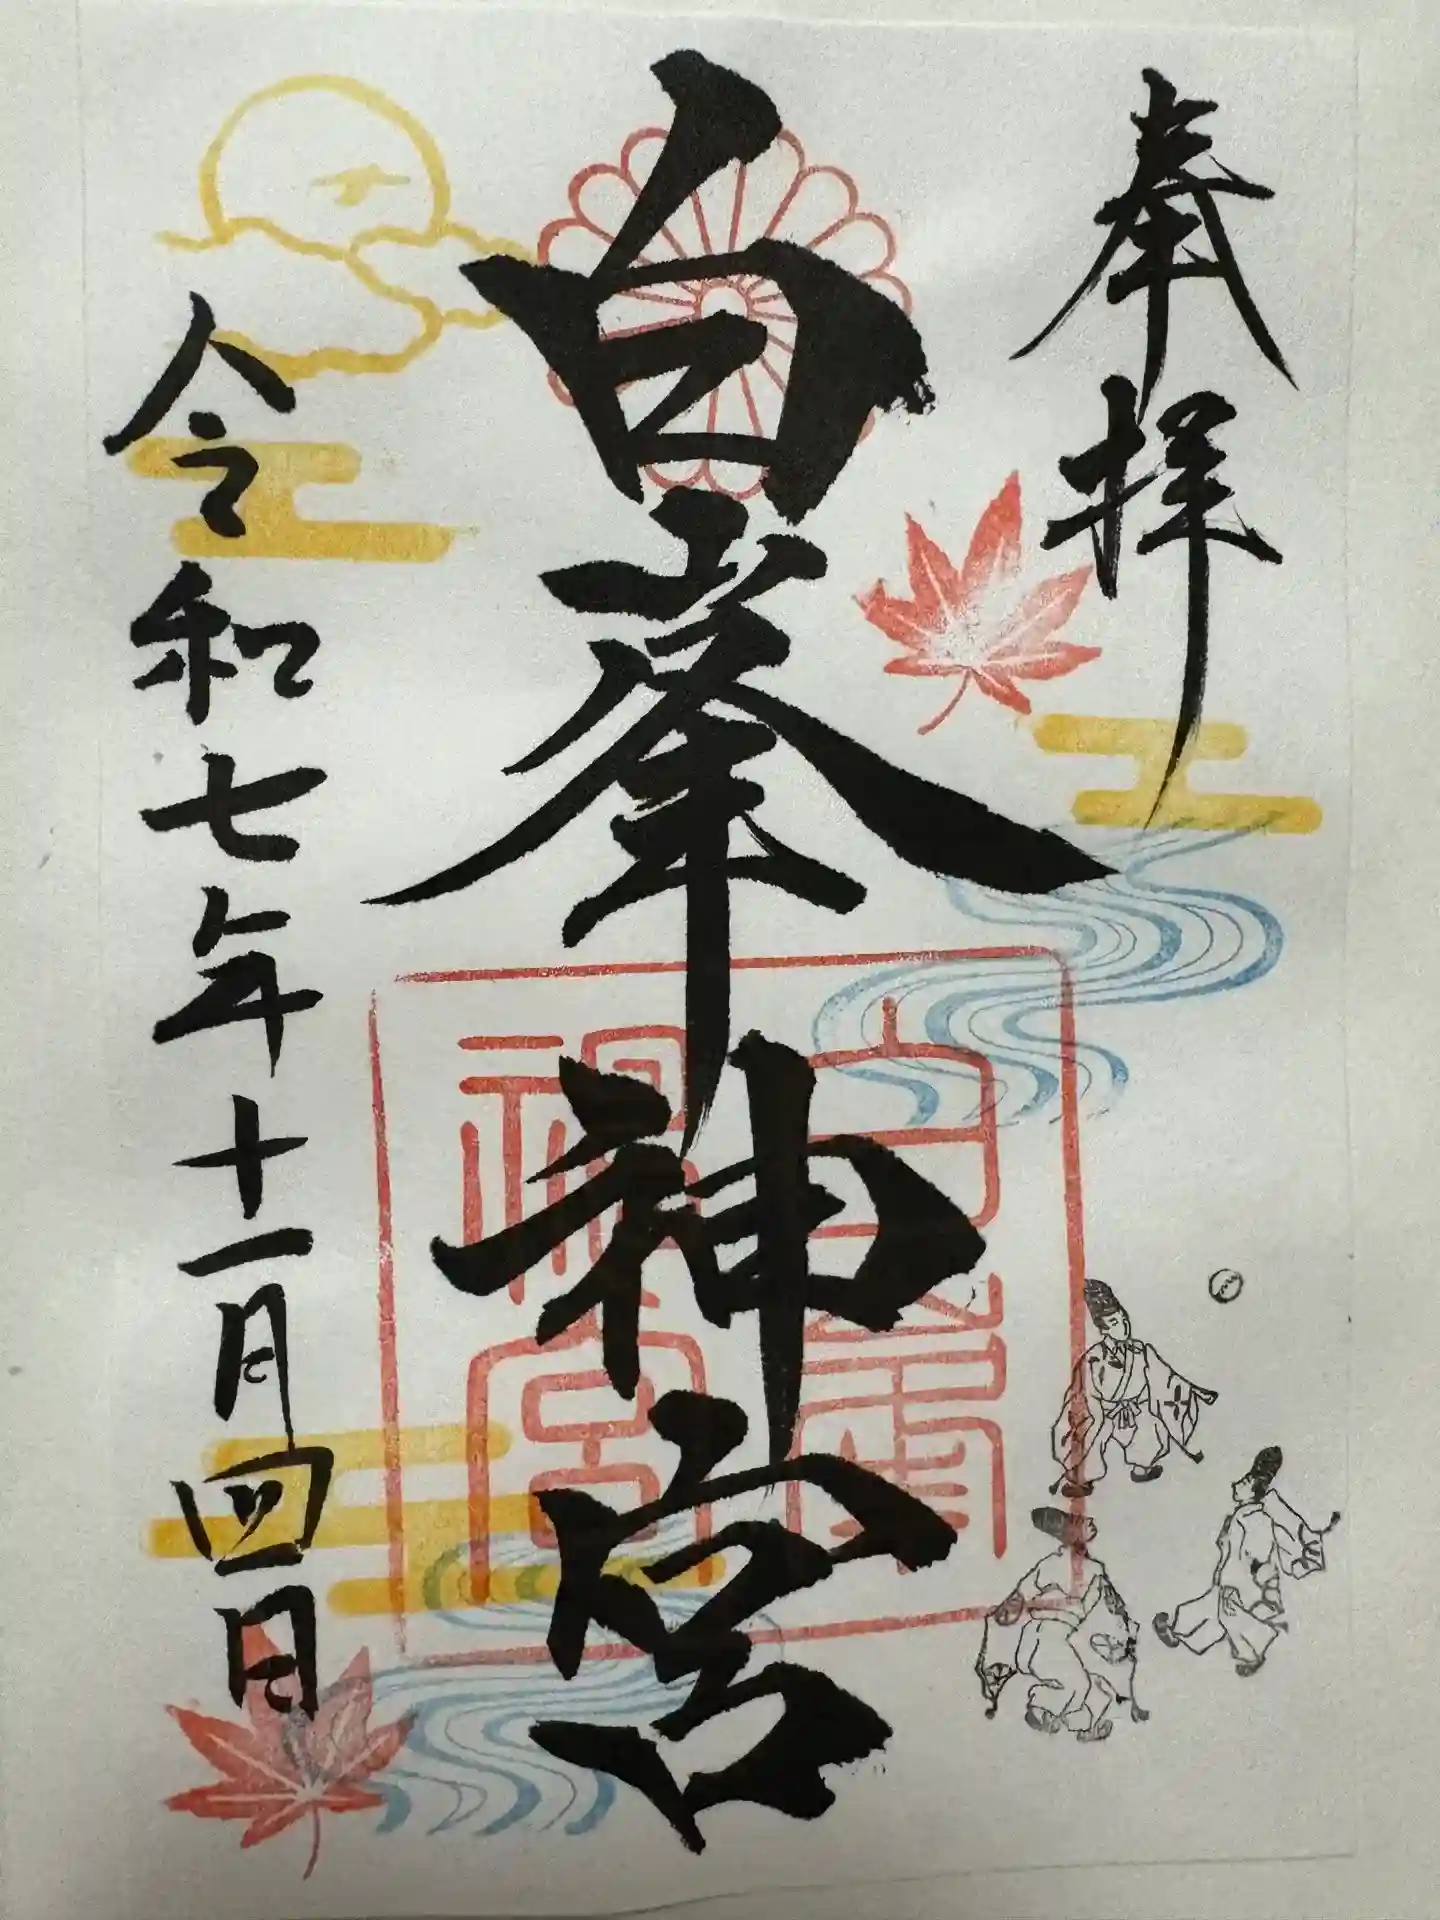 奉拝
白峯神宮
令和七年十一月四日
白峯
神宮